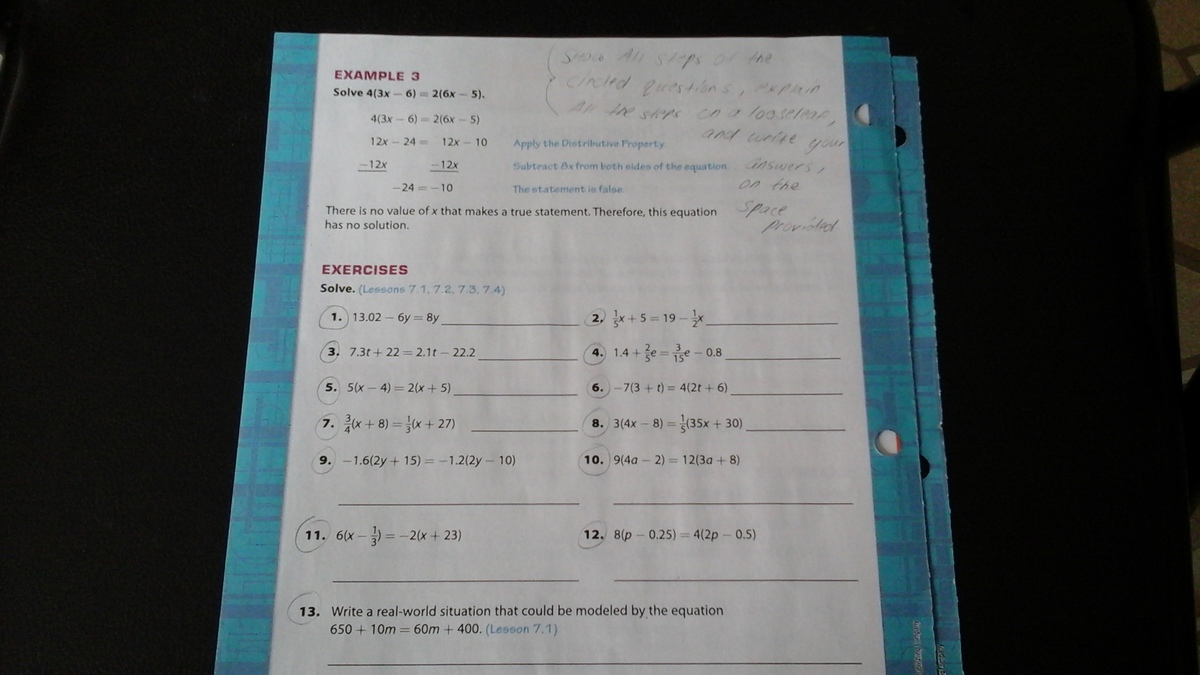 Show All steps of the
circled questions, explain
All the steps on a looseleaf,
and write your
answers,
on the
space
provided
EXAMPLE 3
Solve 4(3x − 6) = 2(6x − 5).
4(3x − 6) = 2(6x − 5)
12x − 24 = 12x − 10 Apply the Distributive Property.
−12x −12x Subtract 8x from both sides of the equation.
−24 = −10 The statement is false.
There is no value of x that makes a true statement. Therefore, this equation
has no solution.
EXERCISES
Solve. (Lessons 7.1, 7.2, 7.3, 7.4)
1. 13.02 − 6y = 8y
2. 1/5x + 5 = 19 − 1/2x
3. 7.3t + 22 = 2.1t − 22.2
4. 1.4 + 2/5e = 3/15e − 0.8
5. 5(x − 4) = 2(x + 5)
6. −7(3 + t) = 4(2t + 6)
7. 3/4(x + 8) = 1/3(x + 27)
8. 3(4x − 8) = 1/5(35x + 30)
9. −1.6(2y + 15) = −1.2(2y − 10)
10. 9(4a − 2) = 12(3a + 8)
11. 6(x − 1/3) = −2(x + 23)
12. 8(p − 0.25) = 4(2p − 0.5)
13. Write a real-world situation that could be modeled by the equation
650 + 10m = 60m + 400. (Lesson 7.1)